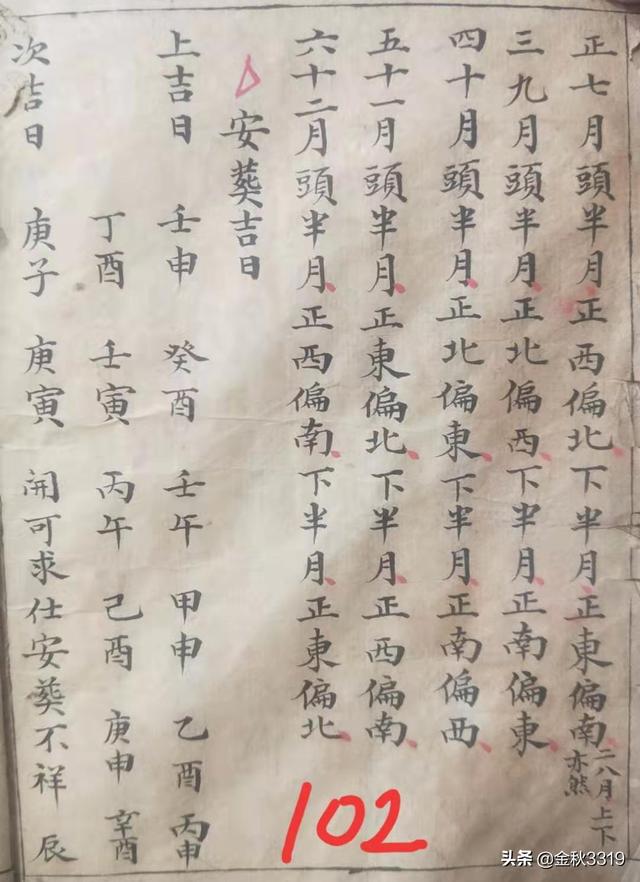 正七月頭半月正西偏北下半月正東偏南二八月上下亦然
三九月頭半月正北偏西下半月正南偏東
四十月頭半月正北偏東下半月正南偏西
五十一月頭半月正東偏北下半月正西偏南
六十二月頭半月正西偏南下半月正東偏北
安葬吉日
上吉日 壬申 癸酉 壬午 甲申 乙酉 丙申
丁酉 壬寅 丙午 己酉 庚申 辛酉
次吉日 庚子 庚寅 開可求仕安葬不祥 辰
102
头条 @金秋3319